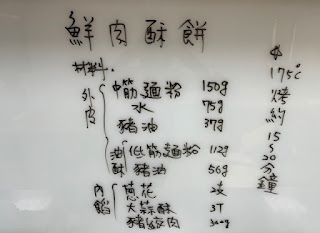 鮮肉酥餅
材料.
外皮
中筋麵粉 150g
水 75g
豬油 37g
油酥
低筋麵粉 112g
豬油 56g
內餡
蔥花 2支
大蒜酥 3T
豬絞肉 300g
175℃
烤約
15
20
分鐘